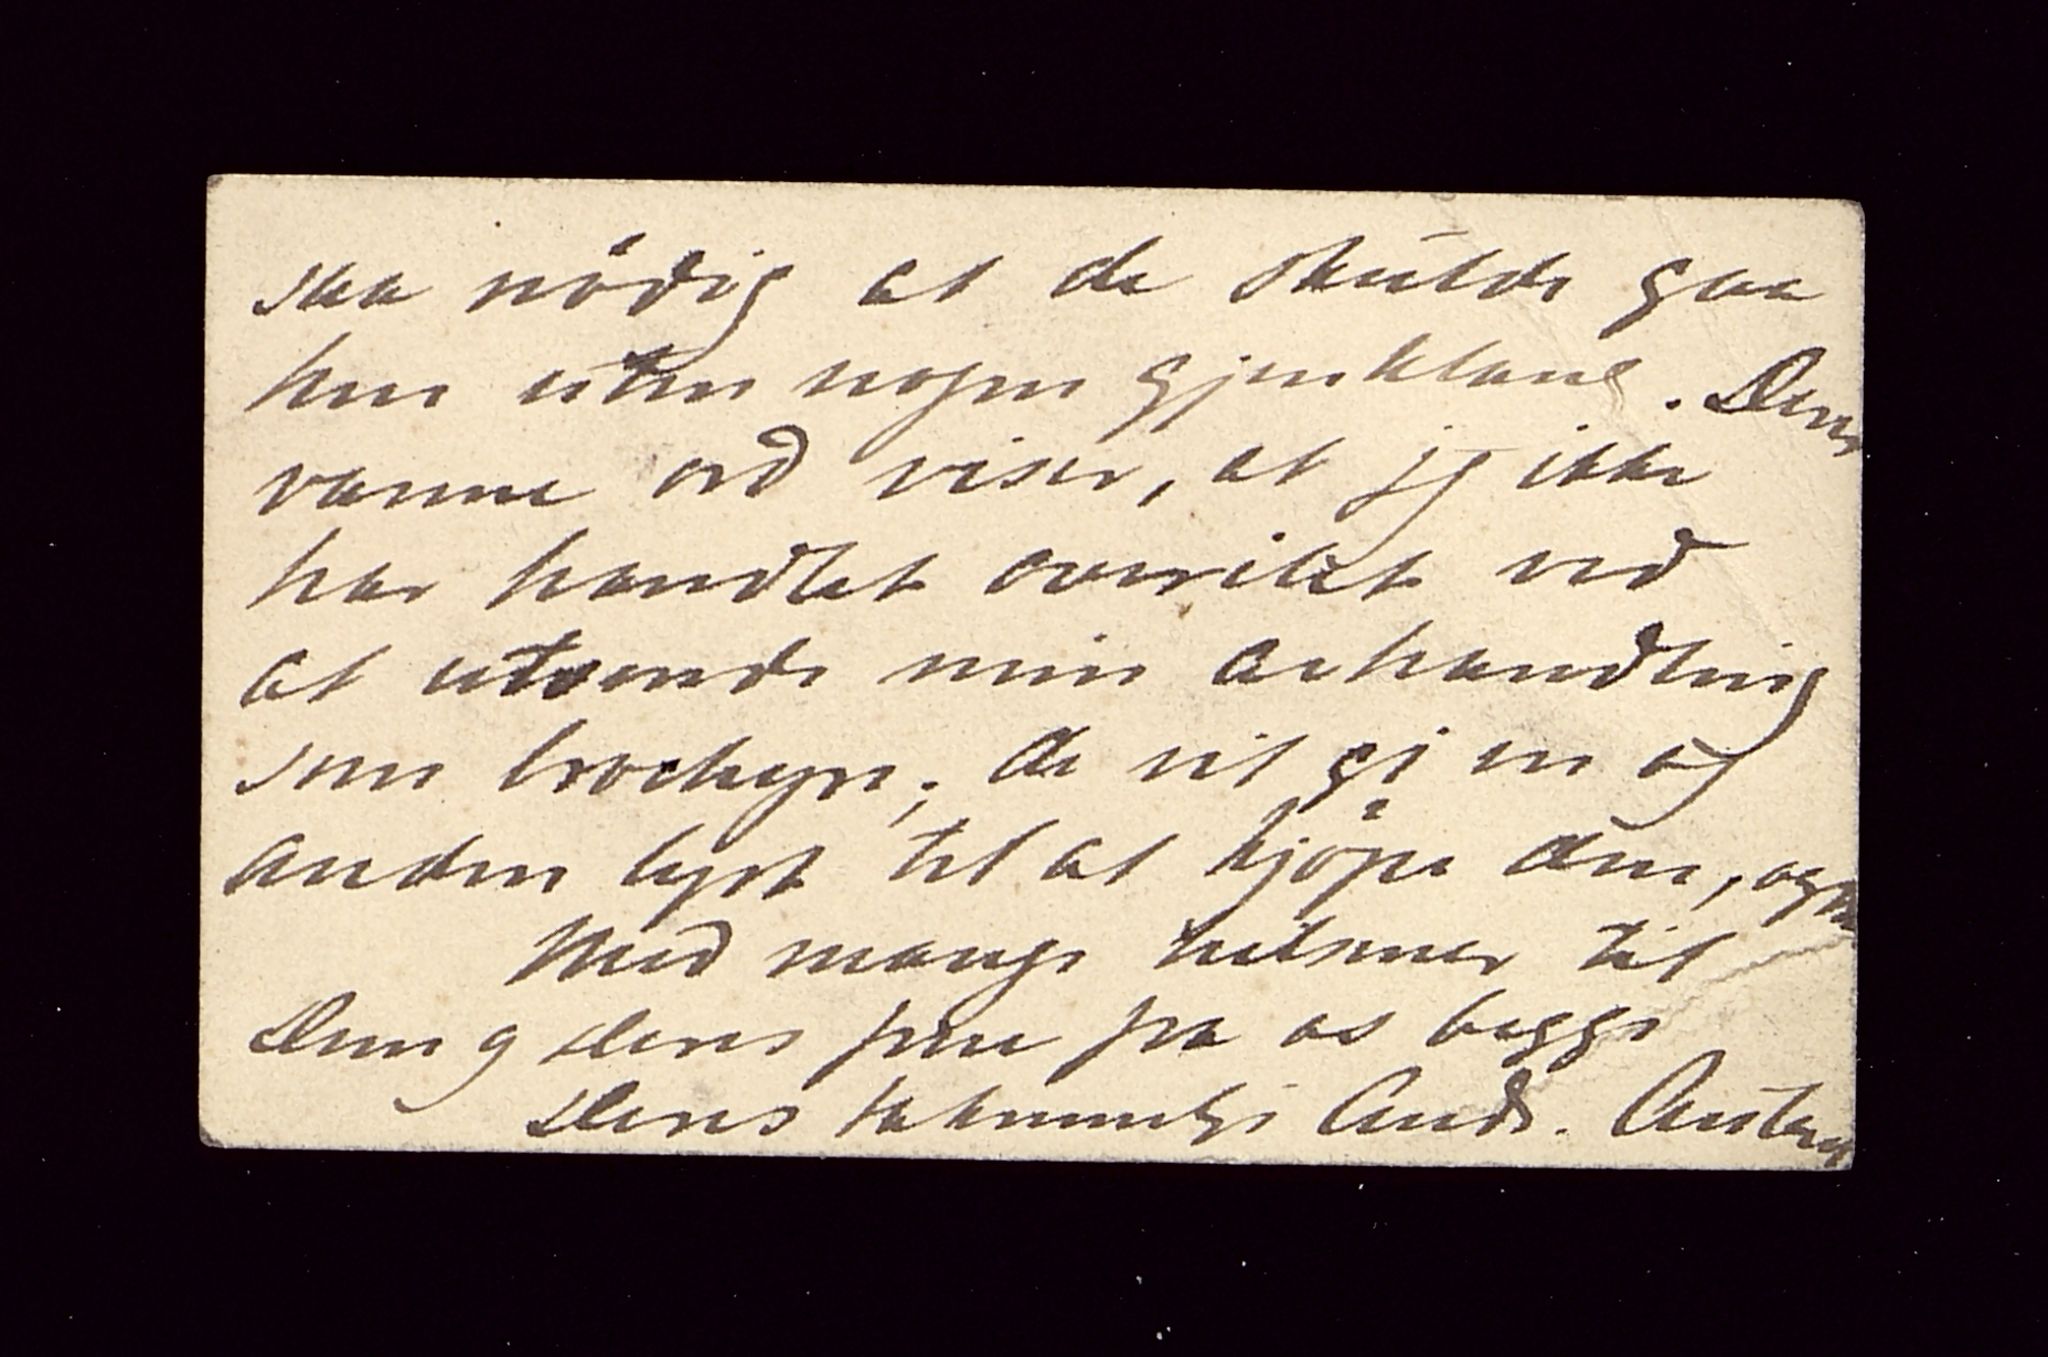 saa nödig at de skulde gaa
hen uten nogen gjenklang. Deres
varme ord viser, at jeg ikke
har handlet overilet ved
at utsende min avhandling
som brochyre; de vil gi en og
anden lyst til at kjöpe den,
Med mange hilsener til
Dem og deres frue fra os begge
Deres taknemlige Andr. Austlid